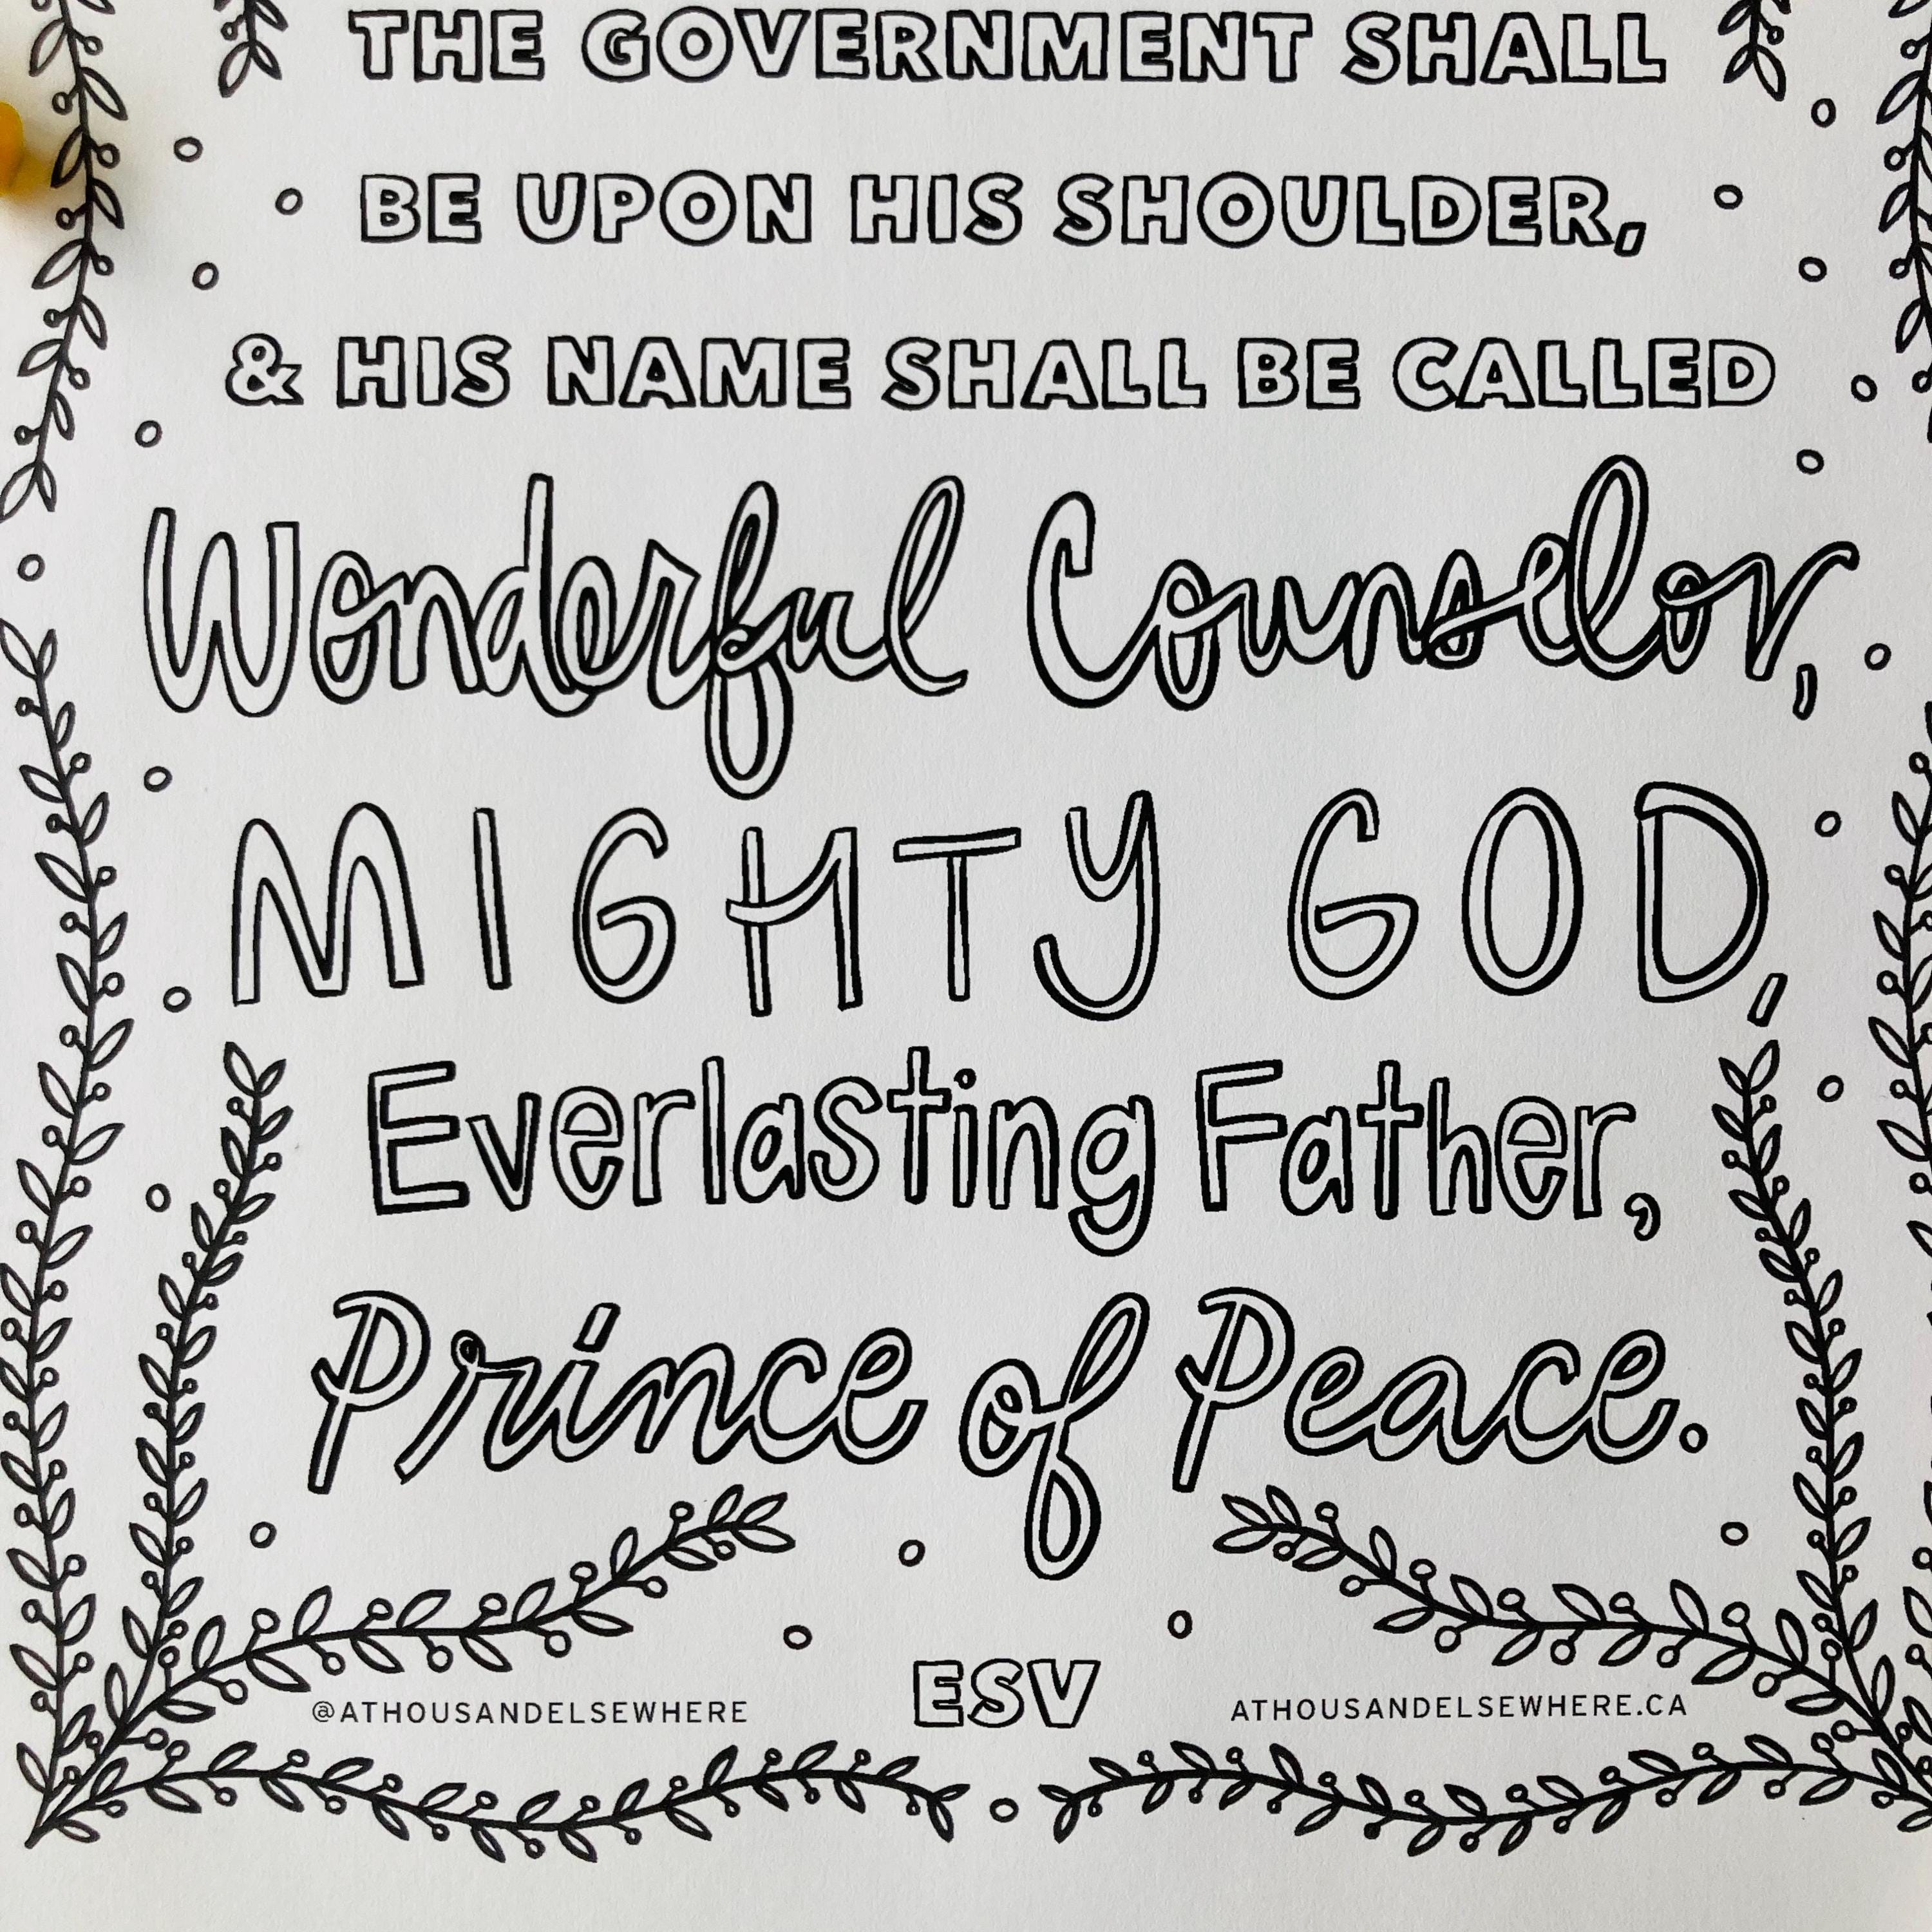 THE GOVERNMENT SHALL
BE UPON HIS SHOULDER,
& HIS NAME SHALL BE CALLED
Wonderful Counselor,
MIGHTY GOD,
Everlasting Father,
Prince of Peace.
ESV
@ATHOUSANDELSEWHERE
ATHOUSANDELSEWHERE.CA